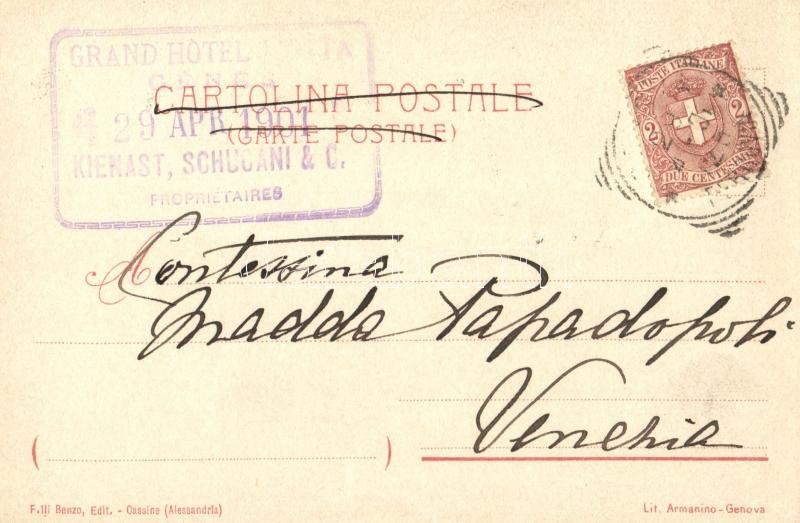 GRAND HÔTEL
GÊNES
29 APR 1901
KIENAST, SCHUCANI & C.
PROPRIÉTAIRES
CARTOLINA POSTALE
(CARTE POSTALE)
POSTE ITALIANE
2 2
DUE CENTESIMI
Contessina
Madda Papadopoli
Venezia
F.lli Benzo, Edit. - Cassine (Alessandria)
Lit. Armanino - Genova